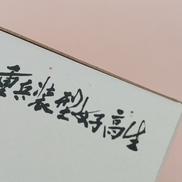 重兵装型女子高生